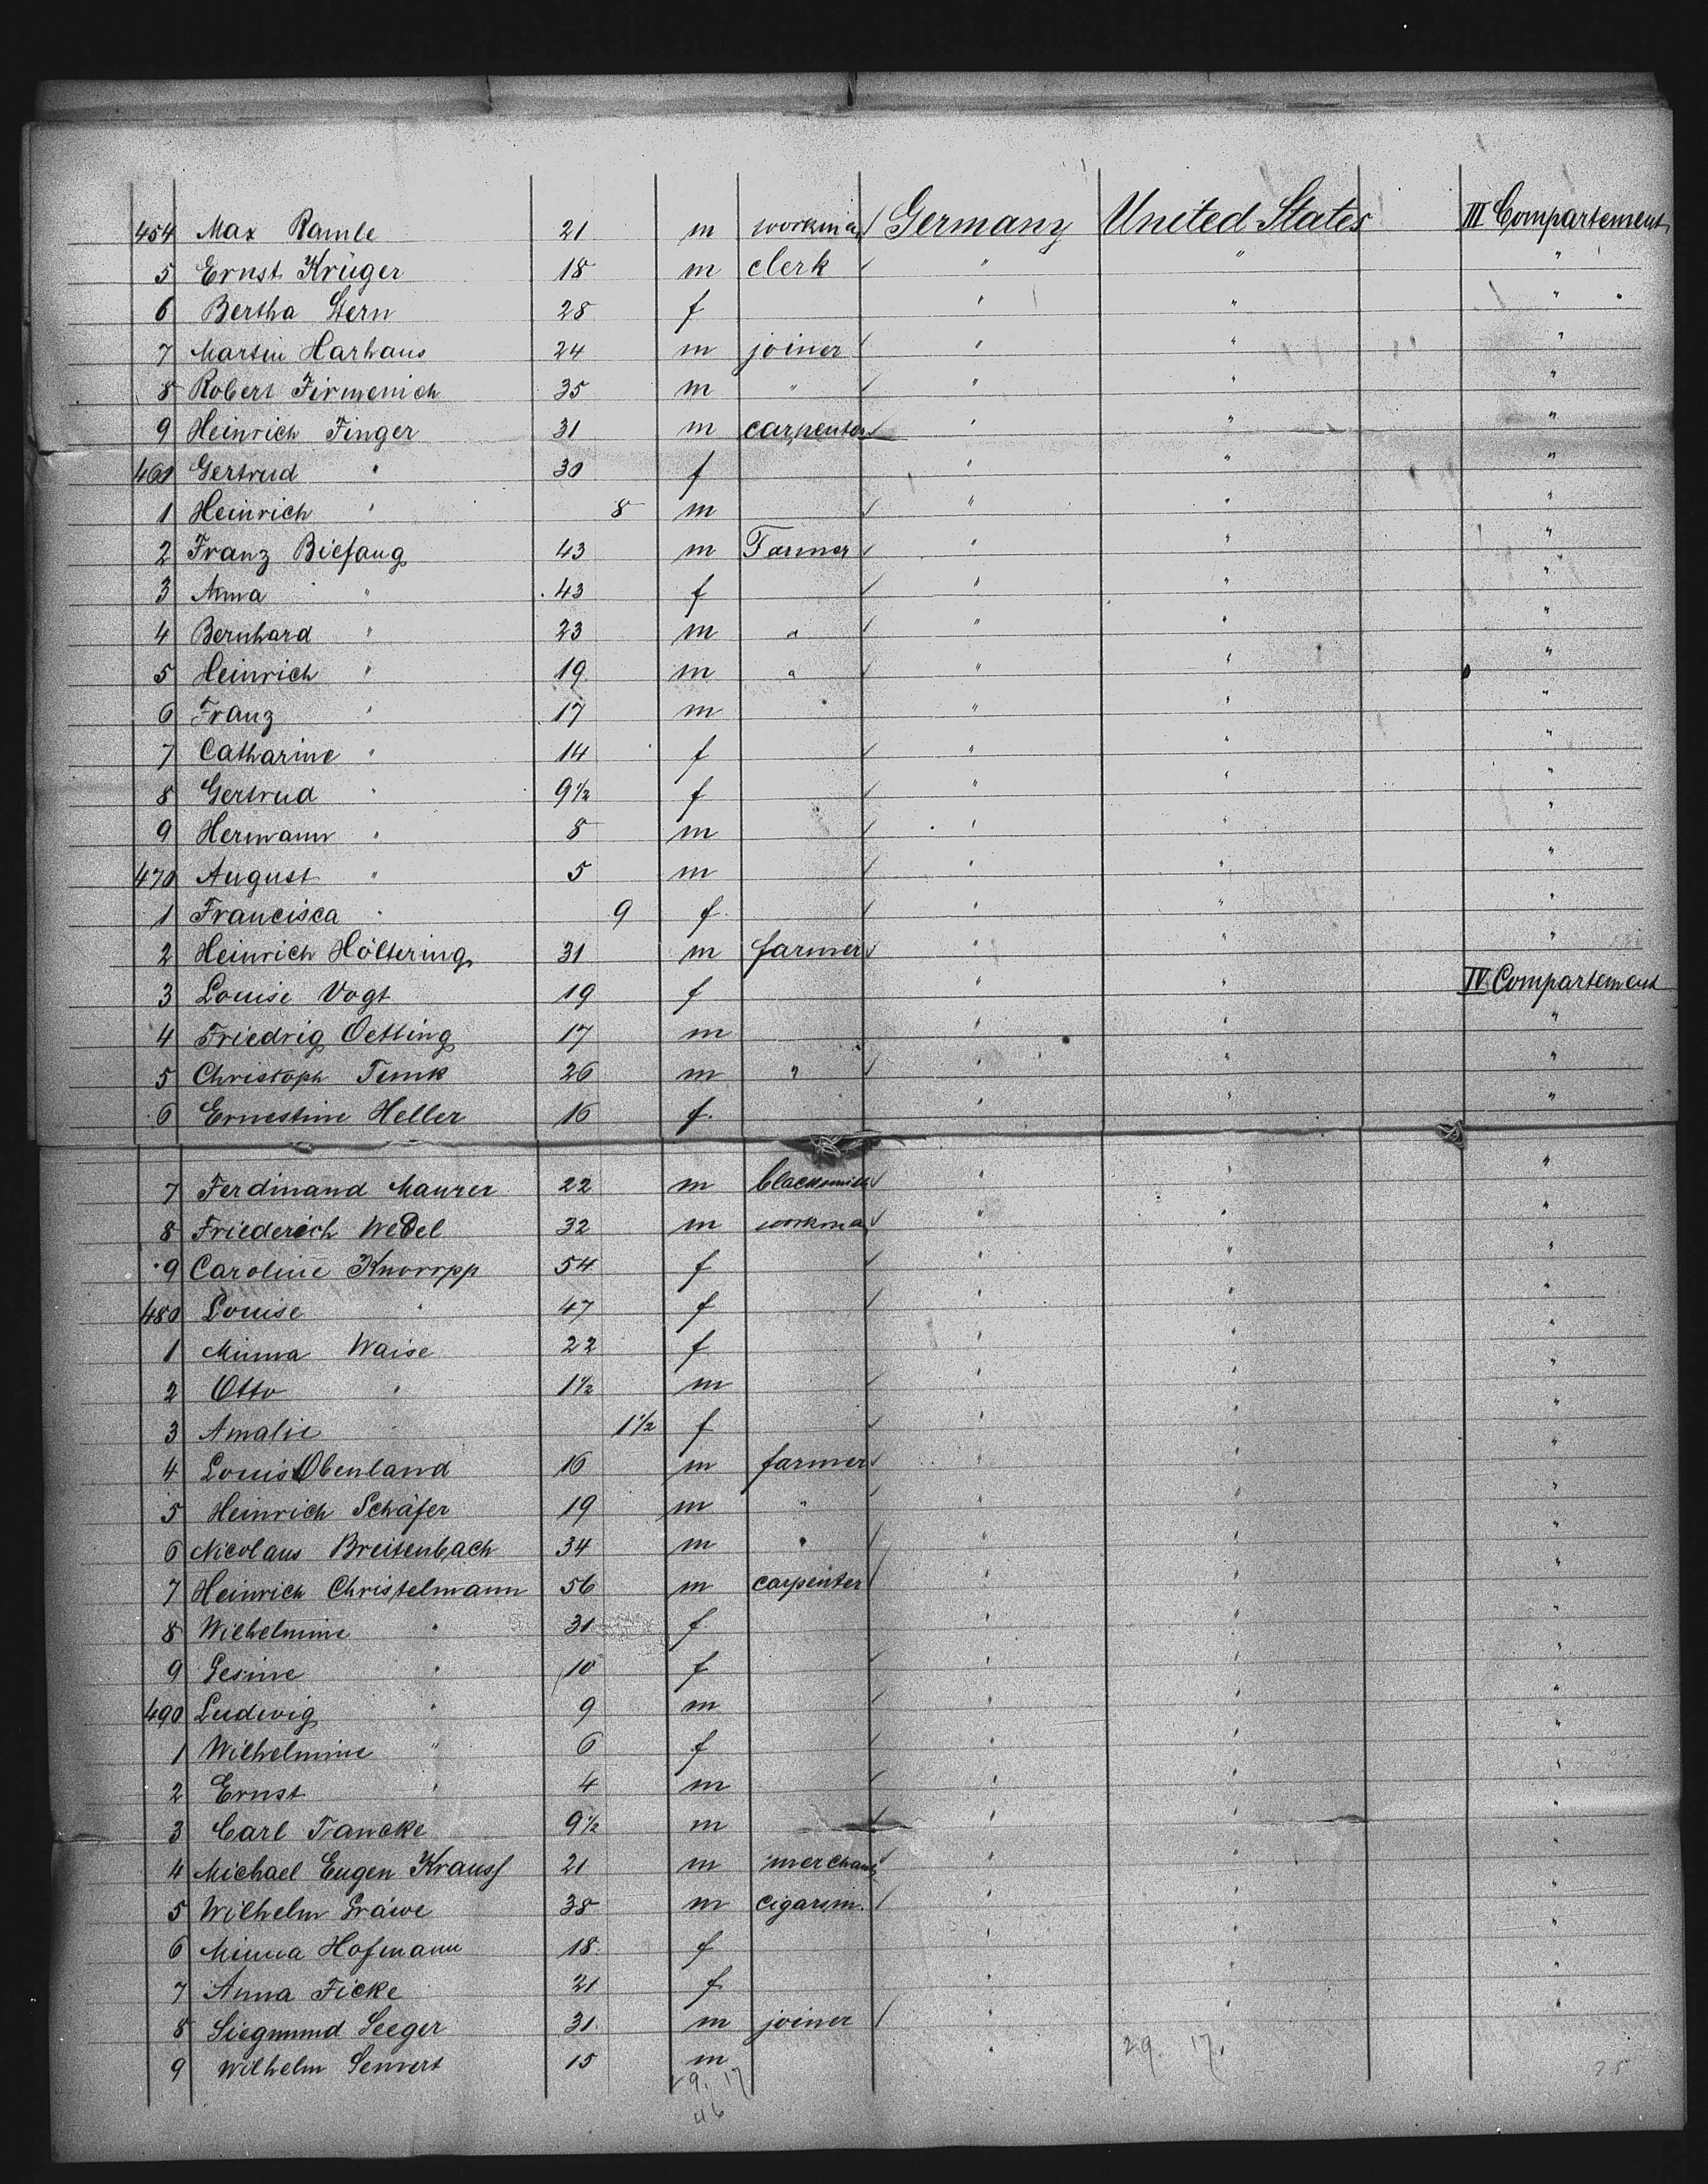 454 Max Ramle 21 m workman Germany United States III Compartement
5 Ernst Krüger 18 m clerk " " "
6 Bertha Stern 28 f " " "
7 Martin Harhaus 24 m joiner " " "
8 Robert Firmenich 35 m " " " "
9 Heinrich Finger 31 m carpenter " " "
460 Gertrud " 30 f " " "
1 Heinrich " 8 m " " "
2 Franz Biefang 43 m Farmer " " "
3 Anna " 43 f " " "
4 Bernhard " 23 m " " " "
5 Heinrich " 19 m " " " "
6 Franz " 17 m " " "
7 Catharine " 14 f " " "
8 Gertrud " 9½ f " " "
9 Hermann " 8 m " " "
470 August " 5 m " " "
1 Francisca " 9 f " " "
2 Heinrich Höltering 31 m farmer " " "
3 Louise Vogt 19 f " " IV Compartement
4 Friedrig Oetting 17 m " " "
5 Christoph Temk 26 m " " " "
6 Ernestine Heller 16 f. " " "
7 Ferdinand Maurer 22 m blacksmith " " "
8 Friederich Wedel 32 m workman " " "
9 Caroline Knorrpp 54 f " " "
480 Louise " 47 f " " "
1 Minna Waise 22 f " " "
2 Otto " 1½ m " " "
3 Amalie " 1½ f " " "
4 Louis Obenland 16 m farmer " " "
5 Heinrich Schäfer 19 m " " " "
6 Nicolaus Breitenbach 34 m " " " "
7 Heinrich Christelmann 56 m carpenter " " "
8 Wilhelmine " 31 f " " "
9 Gesine " 10 f " " "
490 Ludwig " 9 m " " "
1 Wilhelmine " 6 f " " "
2 Ernst " 4 m " " "
3 Carl Tancke 9½ m " " "
4 Michael Eugen Krauss 21 m merchant " " "
5 Wilhelm Gräwe 38 m cigarsm. " " "
6 Minna Hofmann 18 f " " "
7 Anna Ficke 21 f " " "
8 Siegmund Seeger 31 m joiner " " "
9 Wilhelm 15 m "
29. 17.
29. 17
46
25